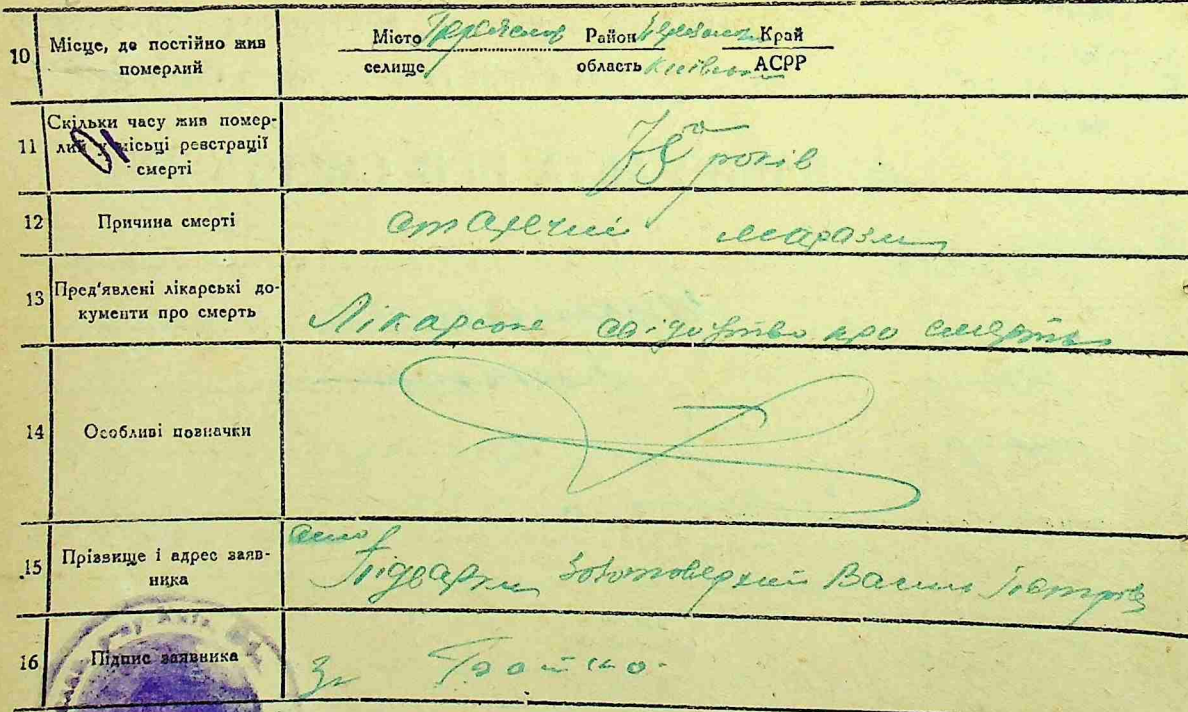 10 Місце, де постійно жив Місто Переяслов Район Край
померлий селище область Київська АСРР
Скільки часу жив помер-
11 лий у місці реєстрації 78 років
смерті
12 Причина смерті старечий маразм
13 Пред'явлені лікарські до-
кументи про смерть Лікарське свідоцтво про смерть
14 Особливі позначки
село
15 Прізвище і адрес заяв- Підварки Золотоверхий Василь Петров
ника
16 Підпис заявника